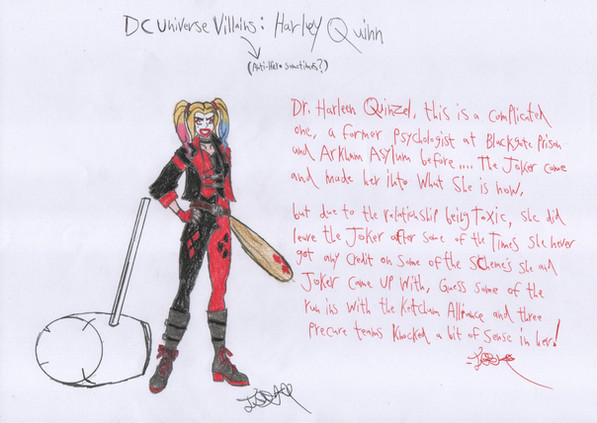 DC Universe Villains: Harley Quinn
(Anti-Hero sometimes?)
Dr. Harleen Quinzel, this is a complicated
one, a former psychologist at Blackgate Prison
and Arkham Asylum before .... The Joker came
and made her into what she is now,
but due to the relationship being toxic, she did
leave the Joker after some of the Times she never
got any credit on some of the Schemes she and
Joker came up with, Guess some of the
run ins with the Ketchum Alliance and three
precure teams knocked a bit of Sense in her!